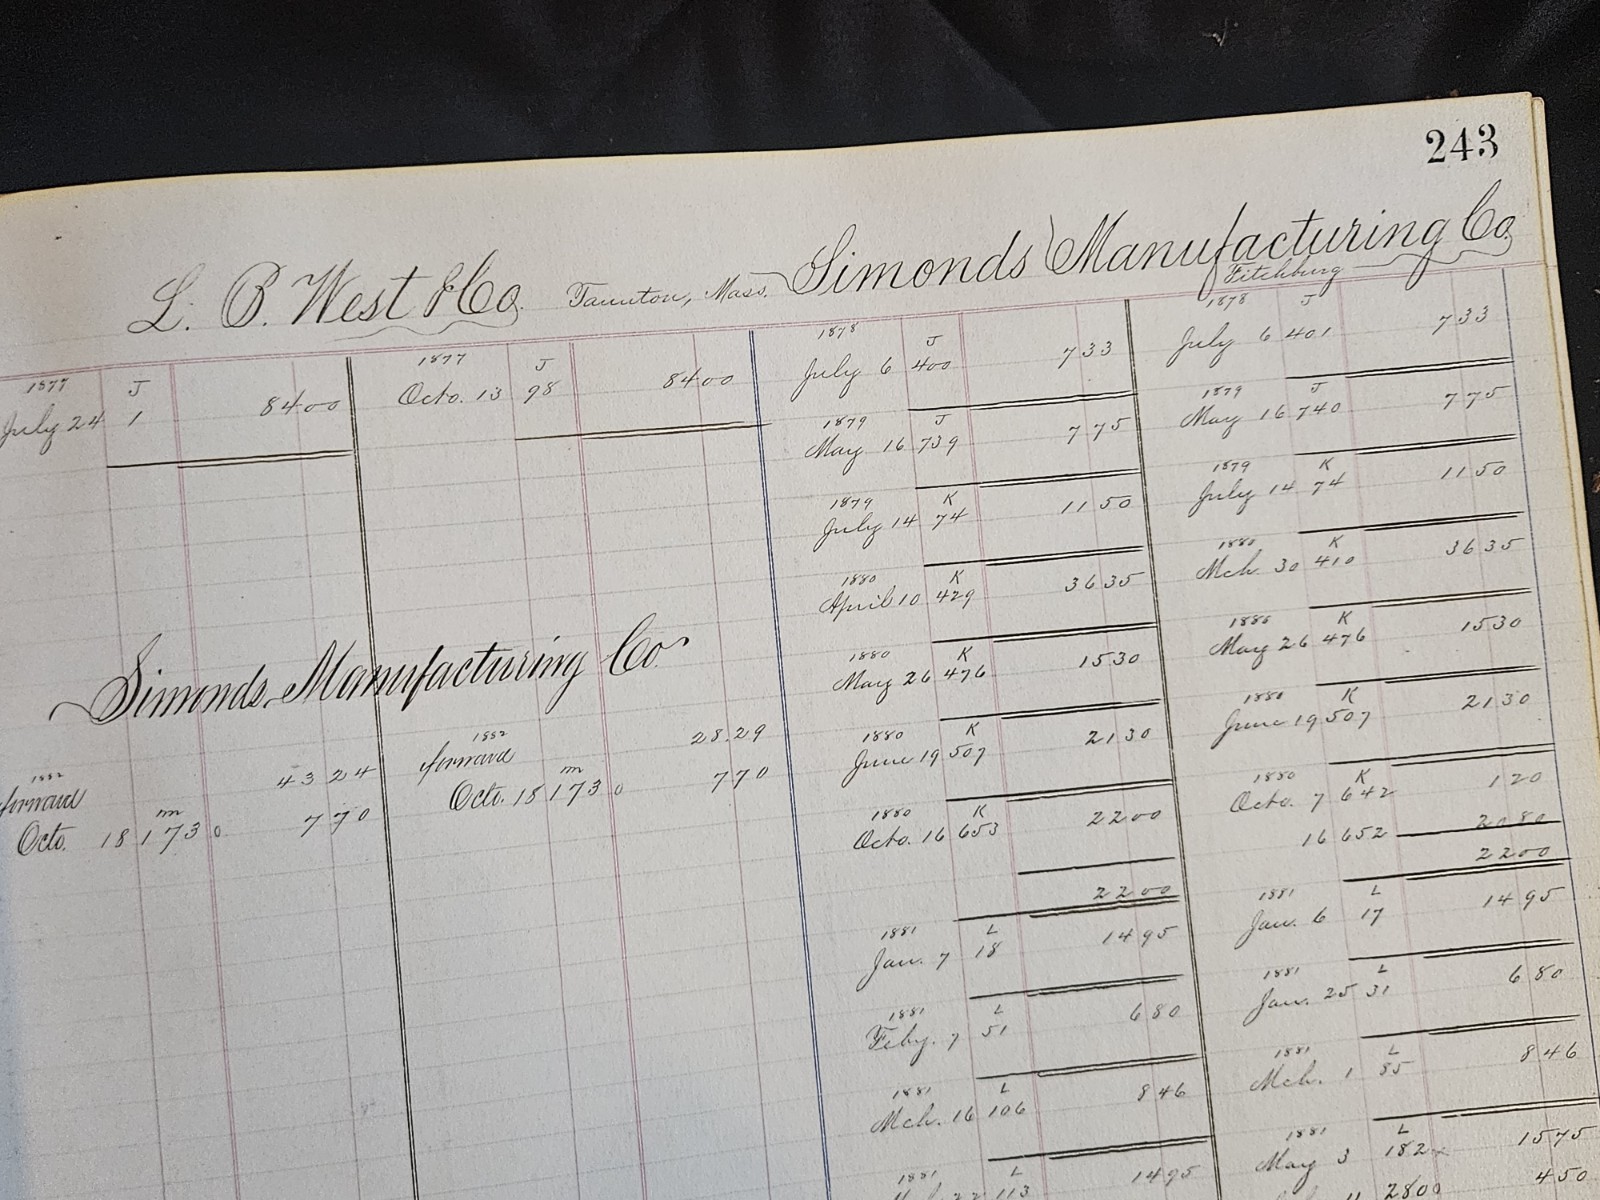 243
L. B. West & Co. Taunton, Mass.
1877 J
July 24 1 8400
1877 J
Octo. 13 98 8400
Simonds Manufacturing Co
1882
forward 4324
m
Octo. 18 173 0 770
1882
forward 28.29
m
Octo. 18 173 0 770
Simonds Manufacturing Co.
Fitchburg
1878 J
July 6 400 733
1879 J
May 16 739 775
1879 K
July 14 74 1150
1880 K
April 10 429 3635
1880 K
May 26 476 1530
1880 K
June 19 507 2130
1880 K
Octo. 16 653 2200
2200
1881 L
Jan. 7 18 1495
1881 L
Feby. 7 51 680
1881 L
Mch. 16 106 846
1881 L
113 1495
1878 J
July 6 401 733
1879 J
May 16 740 775
1879 K
July 14 74 1150
1880 K
Mch. 30 410 3635
1880 K
May 26 476 1530
1880 K
June 19 507 2130
1880 K
Octo. 7 642 120
16 652 2080
2200
1881 L
Jan. 6 17 1495
1881 L
Jan. 25 31 680
1881 L
Mch. 1 85 846
1881 L
May 3 182 1575
2800 450